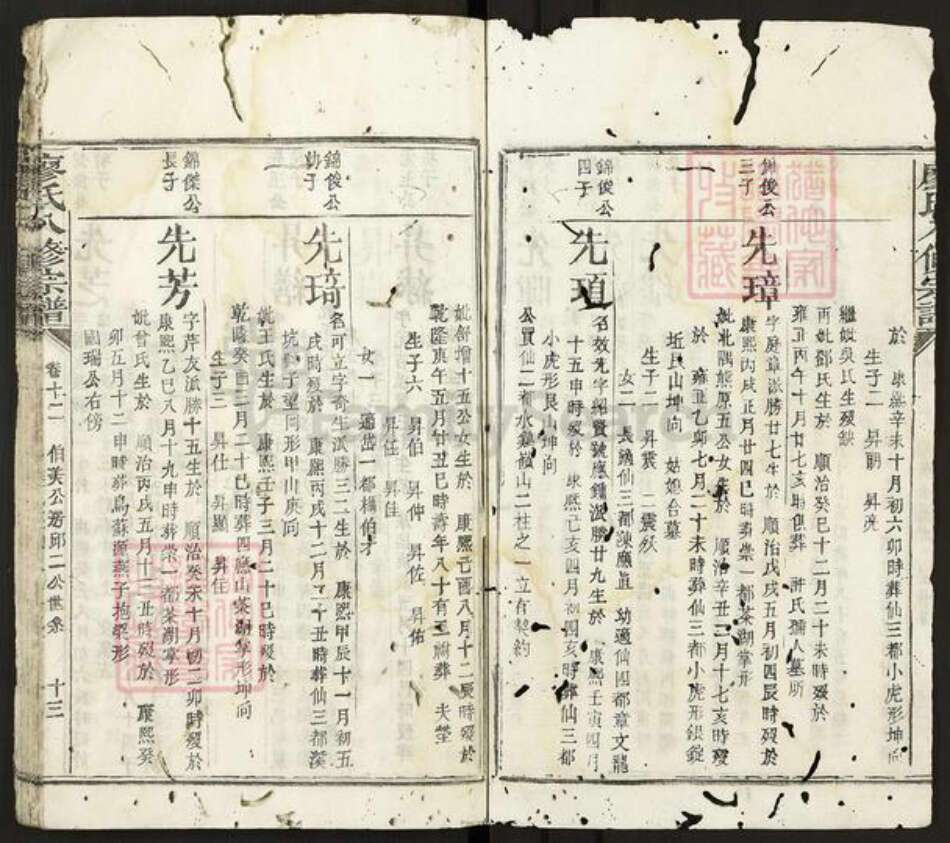 於 康熙辛未十月初六卯時葬仙三都小虎形坤向
生子二 昇嗣
繼娶吳氏生歿缺
再妣鄒氏生於 順治癸巳十二月二十未時歿於
雍正丙午十月廿七亥時俱葬 許氏孺人墓所
錦俊公
三子
先璋
字庭章派勝廿七生於 順治戊戌五月初四辰時歿於
康熙丙戌正月廿四巳時葬崇一都茶湖掌形
妣北隅熊原五公女生於 順治辛丑三月十七亥時歿
於 雍正乙卯七月二十未時葬仙三都小虎形銀錠
坵艮山坤向 姑媳合墓
生子二 昇震 二震
女二 長適仙三都陳應 幼適仙四都章文龍
錦俊公
四子
先頊
名效先字紹賢號應鍾派勝廿九生於 康熙壬寅四月
十五申時歿於 康熙己亥四月初四亥時葬仙三都
小虎形艮山坤向
公買仙二都水 山二柱之一立有契約
妣舒增十五公女生於 康熙己酉八月十二辰時歿於
乾隆庚午五月廿五巳時壽年八十有二祔葬 夫塋
生子六 昇伯 昇仲 昇佐 昇佑
昇任 昇佳
女一 適岱一都楊伯才
錦俊公
幼子
先琦
名可立字奇生派勝三二生於 康熙甲辰十一月初五
戌時歿於 康熙丙戌十二月二十丑時葬仙三都溪
坑獅子望岡形甲山庚向
妣王氏生於 康熙壬子三月二十巳時歿於
乾隆癸酉二月二十巳時葬四都山茶湖掌形坤向
生子三 昇仕 昇顯 昇任
錦傑公
長子
先芳
字芹友派勝十五生於 順治癸未十月初二卯時歿於
康熙乙巳八月十九申時葬崇一都茶湖掌形
妣曾氏生於 順治丙戌五月十二丑時歿於 康熙癸
卯五月十二申時葬烏蘇源燕子抱梁形
國瑞公右傍
廖氏八修宗譜
卷十二 伯美公秀邱二公世系 十三